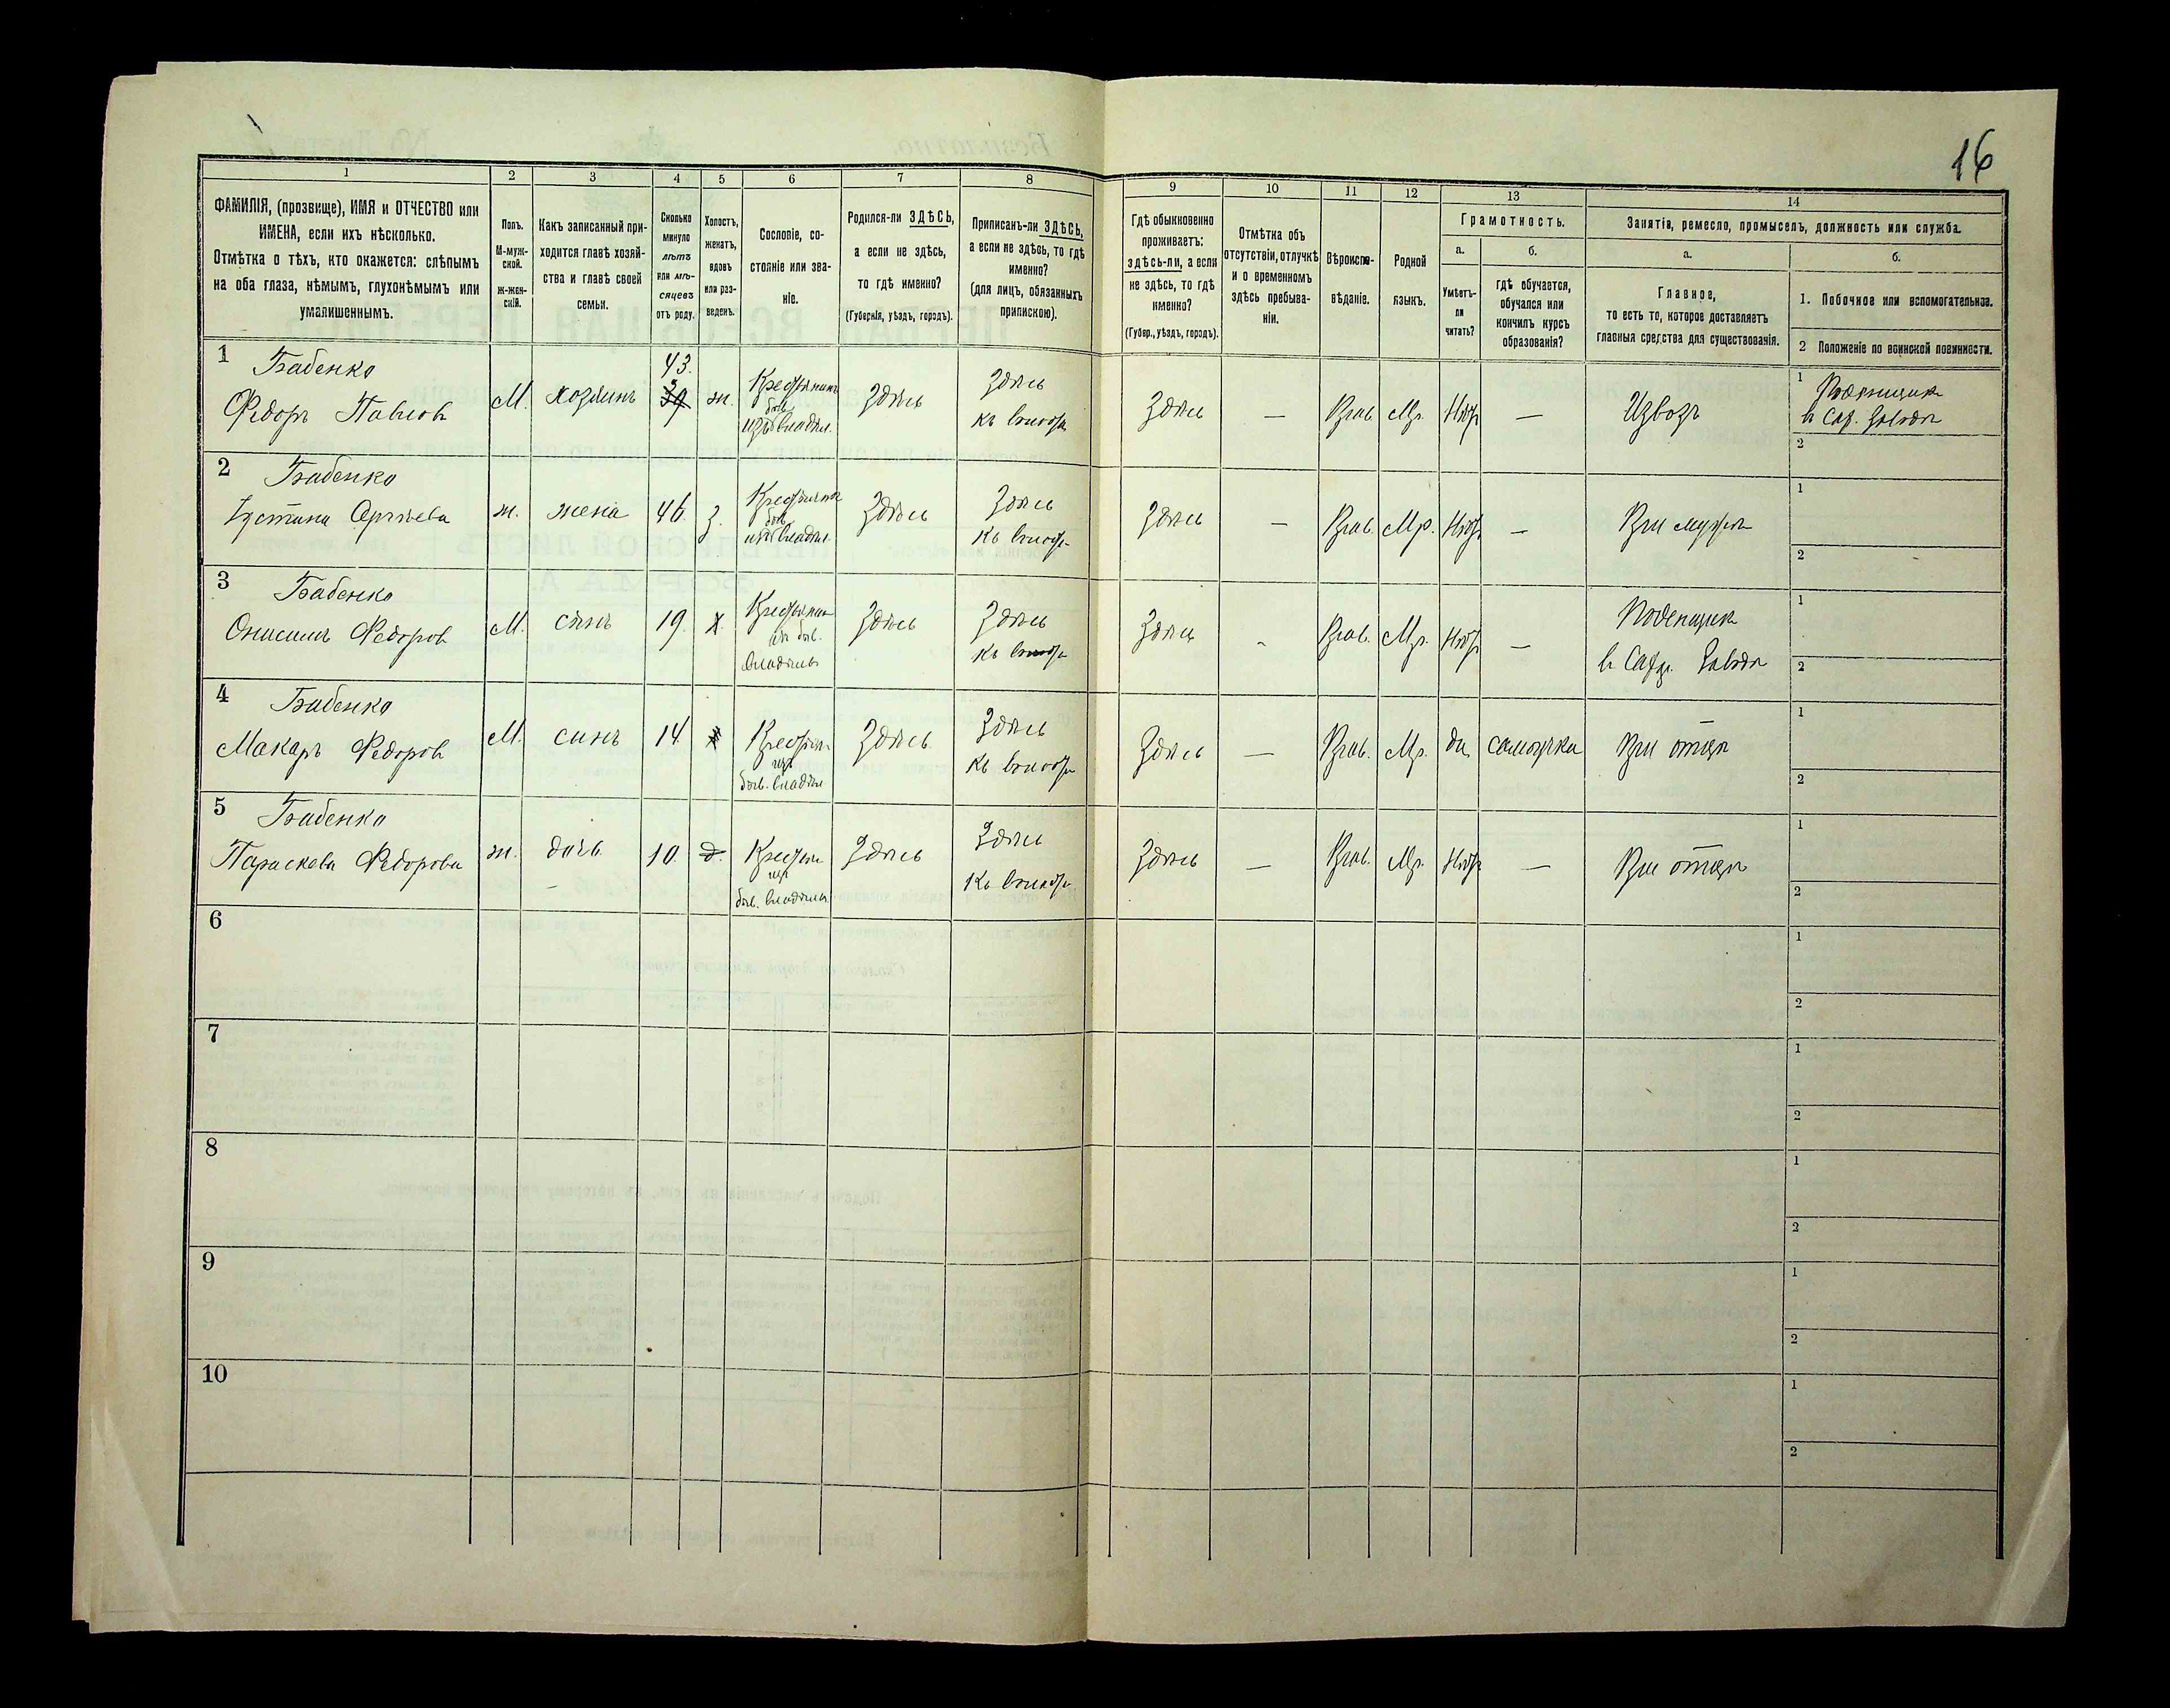 16
1
2
3
4
5
6
7
8
9
10
11
12
13
14
ФАМИЛІЯ, (прозвище), ИМЯ и ОТЧЕСТВО или
ИМЕНА, если ихъ нѣсколько.
Отмѣтка о тѣхъ, кто окажется: слѣпымъ
на оба глаза, нѣмымъ, глухонѣмымъ или
умалишеннымъ.
Полъ.
М-муж-
ской.
ж-жен-
скій.
Какъ записанный при-
ходится главѣ хозяй-
ства и главѣ своей
семьи.
Сколько
минуло
лѣтъ
или мѣ-
сяцевъ
отъ роду.
Холостъ,
женатъ,
вдовъ
или раз-
веденъ.
Сословіе, со-
стояніе или зва-
ніе.
Родился-ли ЗДѢСЬ,
а если не здѣсь,
то гдѣ именно?
(Губернія, уѣздъ, городъ).
Приписанъ-ли ЗДѢСЬ,
а если не здѣсь, то гдѣ
именно?
(для лицъ, обязанныхъ
припискою).
Гдѣ обыкновенно
проживаетъ:
здѣсь-ли, а если
не здѣсь, то гдѣ
именно?
(Губер., уѣздъ, городъ).
Отмѣтка объ
отсутствіи, отлучкѣ
и о временномъ
здѣсь пребыва-
ніи.
Вѣроиспо-
вѣданіе.
Родной
языкъ.
Грамотность.
а.
Умѣетъ-
ли
читать?
б.
гдѣ обучается,
обучался или
кончилъ курсъ
образованія?
Занятіе, ремесло, промыселъ, должность или служба.
а.
Главное,
то есть то, которое доставляетъ
главныя средства для существованія.
б.
1. Побочное или вспомогательное.
2 Положеніе по воинской повинности.
1
Бабенко
Федоръ Павлов
М.
хозяинъ
43.
39
ж.
Крестьянинъ
быв.
изъ владѣл.
Здѣсь
Здѣсь
къ
Здѣсь
—
Прав.
Мр.
Нѣт
—
Извозъ
1
Поденщик
в Сах. Заводѣ
2
2
Бабенко
Устина Сергѣева
ж.
жена
46.
з.
быв.
изъ владѣл.
Здѣсь
Здѣсь
къ
Здѣсь
—
Прав.
Мр.
Нѣт
—
При мужѣ
1
2
3
Бабенко
Онисимъ Федоров
М.
сынъ
19
х.
Крестьянин
из быв.
владѣль
Здѣсь
Здѣсь
къ
Здѣсь
-
Прав.
Мр.
Нѣт
—
Поденщик
в Сахар. Заводѣ
1
2
4
Бабенко
Макаръ Федоров
М.
сынъ
14
Крестьян
из
быв. владѣл
Здѣсь
Здѣсь
къ
Здѣсь
—
Прав.
Мр.
да
самоучка
При отцѣ
1
2
5
Бабенко
Параскева Федорова
ж.
дочь
10.
д.
Крестьян
из
быв. владѣль
Здѣсь
Здѣсь
Къ
Здѣсь
—
Прав.
Мр.
Нѣт
—
При отцѣ
1
2
6
1
2
7
1
2
8
1
2
9
1
2
10
1
2